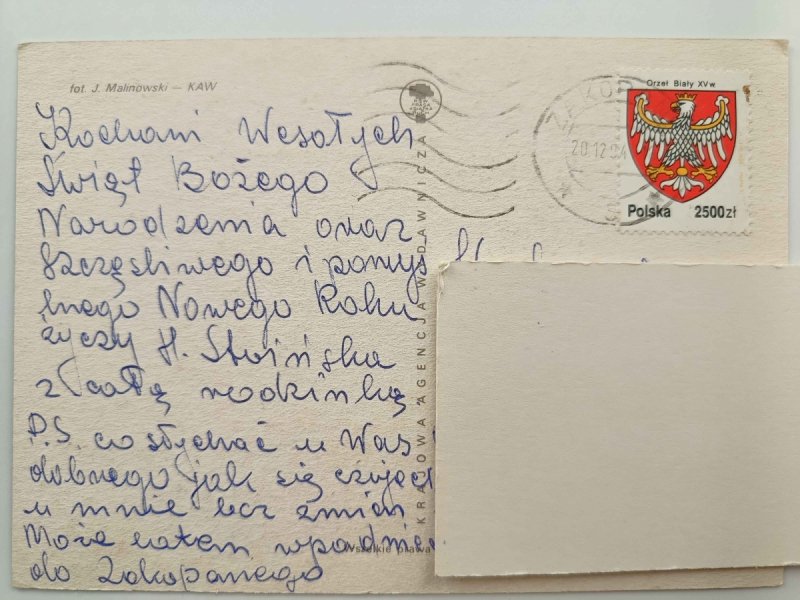 fot. J. Malinowski — KAW
Kochani Wesołych
Świąt Bożego
Narodzenia oraz
Szczęśliwego i pomyś
lnego Nowego Roku
życzy H.
z całą rodzinką
P.S. co słychać u Was
dobrego jak się czujec
u mnie bez zmian
Może latem wpadnie
do Zakopanego
KRAJOWA AGENCJA WYDAWNICZA
Wszelkie prawa
20.12.94
Orzeł Biały XV w.
Polska 2500zł